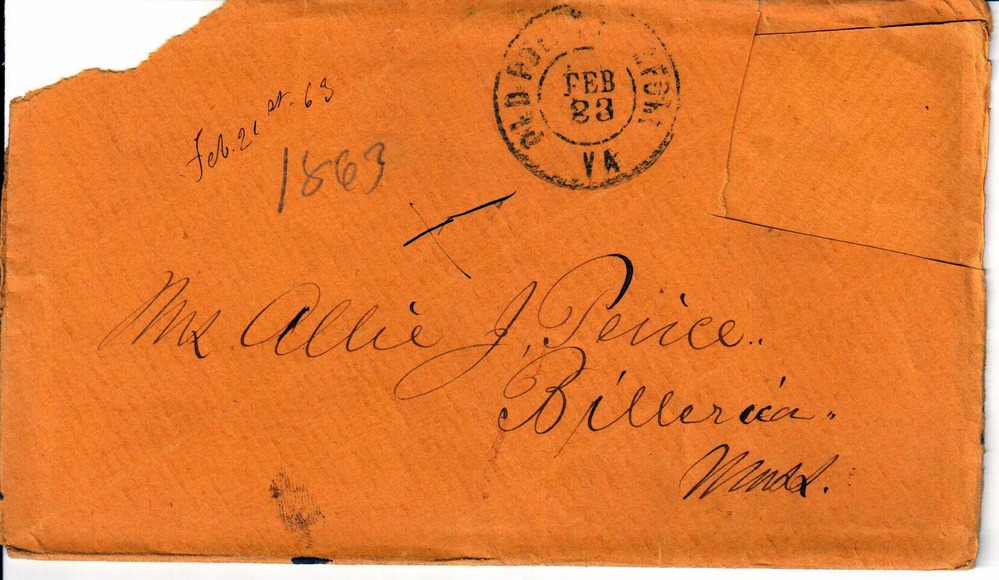 OLD POINT COMFORT
FEB
23
VA
Feb. 21st. 63
1863
Mrs Allie J. Peirce.
Billerica.
Mass.